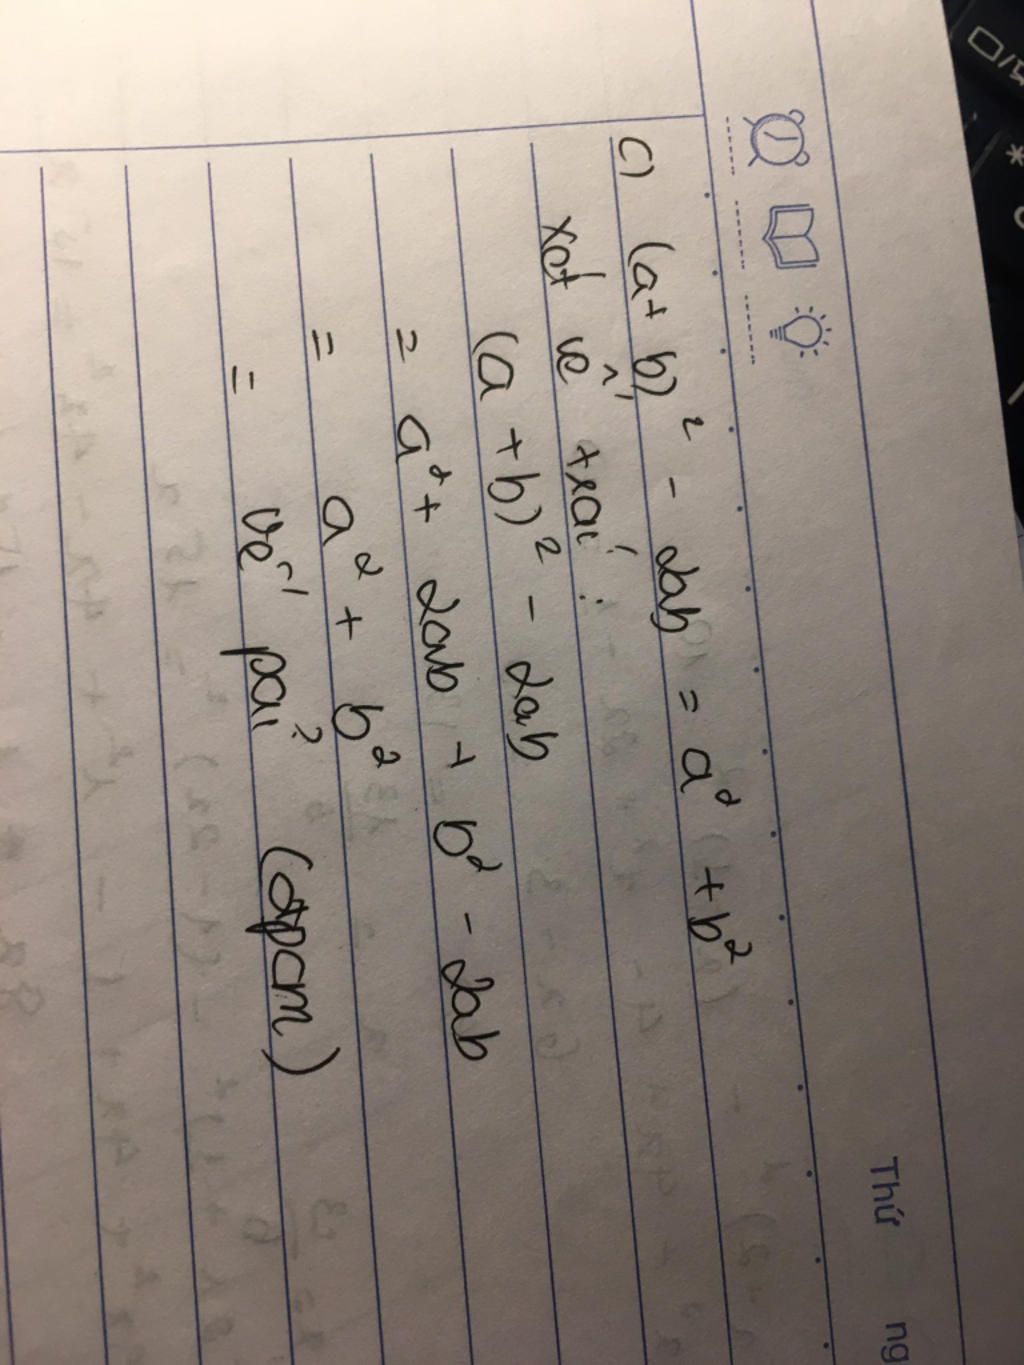 Thứ ng
c) (a + b)² - 2ab = a² + b²
xét vế trái :
(a + b)² - 2ab
= a² + 2ab + b² - 2ab
= a² + b²
= vế pải (đpcm)